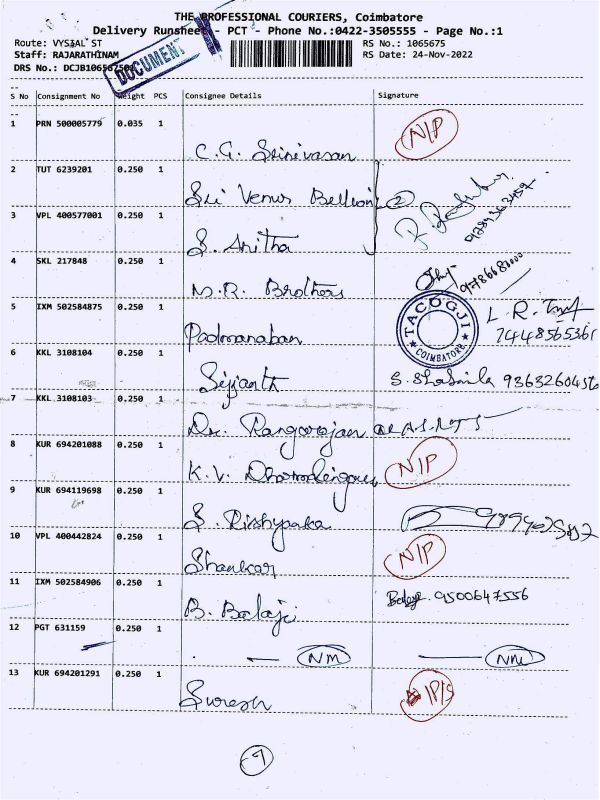 THE PROFESSIONAL COURIERS, Coimbatore
Delivery Runsheet PCT - Phone No.:0422-3505555 - Page No.:1
Route: VYSIAL ST RS No.: 1065675
Staff: RAJARATHINAM RS Date: 24-Nov-2022
DRS No.: DCJB1065675
DOCUMENT
S No Consignment No Weight PCS Consignee Details Signature
1 PRN 500005779 0.035 1 C.G. Srinivasan N/P
2 TUT 6239201 0.250 1 Sri Venus 2
3 VPL 400577001 0.250 1 S. Anitha
4 SKL 217848 0.250 1 M.R. Brothers 9786681000
5 IXM 502584875 0.250 1 Padmanaban L.R. 7448565361
TACOGJI
COIMBATORE
6 KKL 3108104 0.250 1 Sijianth S. 9363260456
7 KKL 3108103 0.250 1 Dr. Rangarajan
8 KUR 694201088 0.250 1 K.V. N/P
9 KUR 694119698 0.250 1 S.
10 VPL 400442824 0.250 1 Shankar N/P
11 IXM 502584906 0.250 1 B. Balaji Balaji 9500647556
12 PGT 631159 0.250 1 NM NM
13 KUR 694201291 0.250 1 Suresh